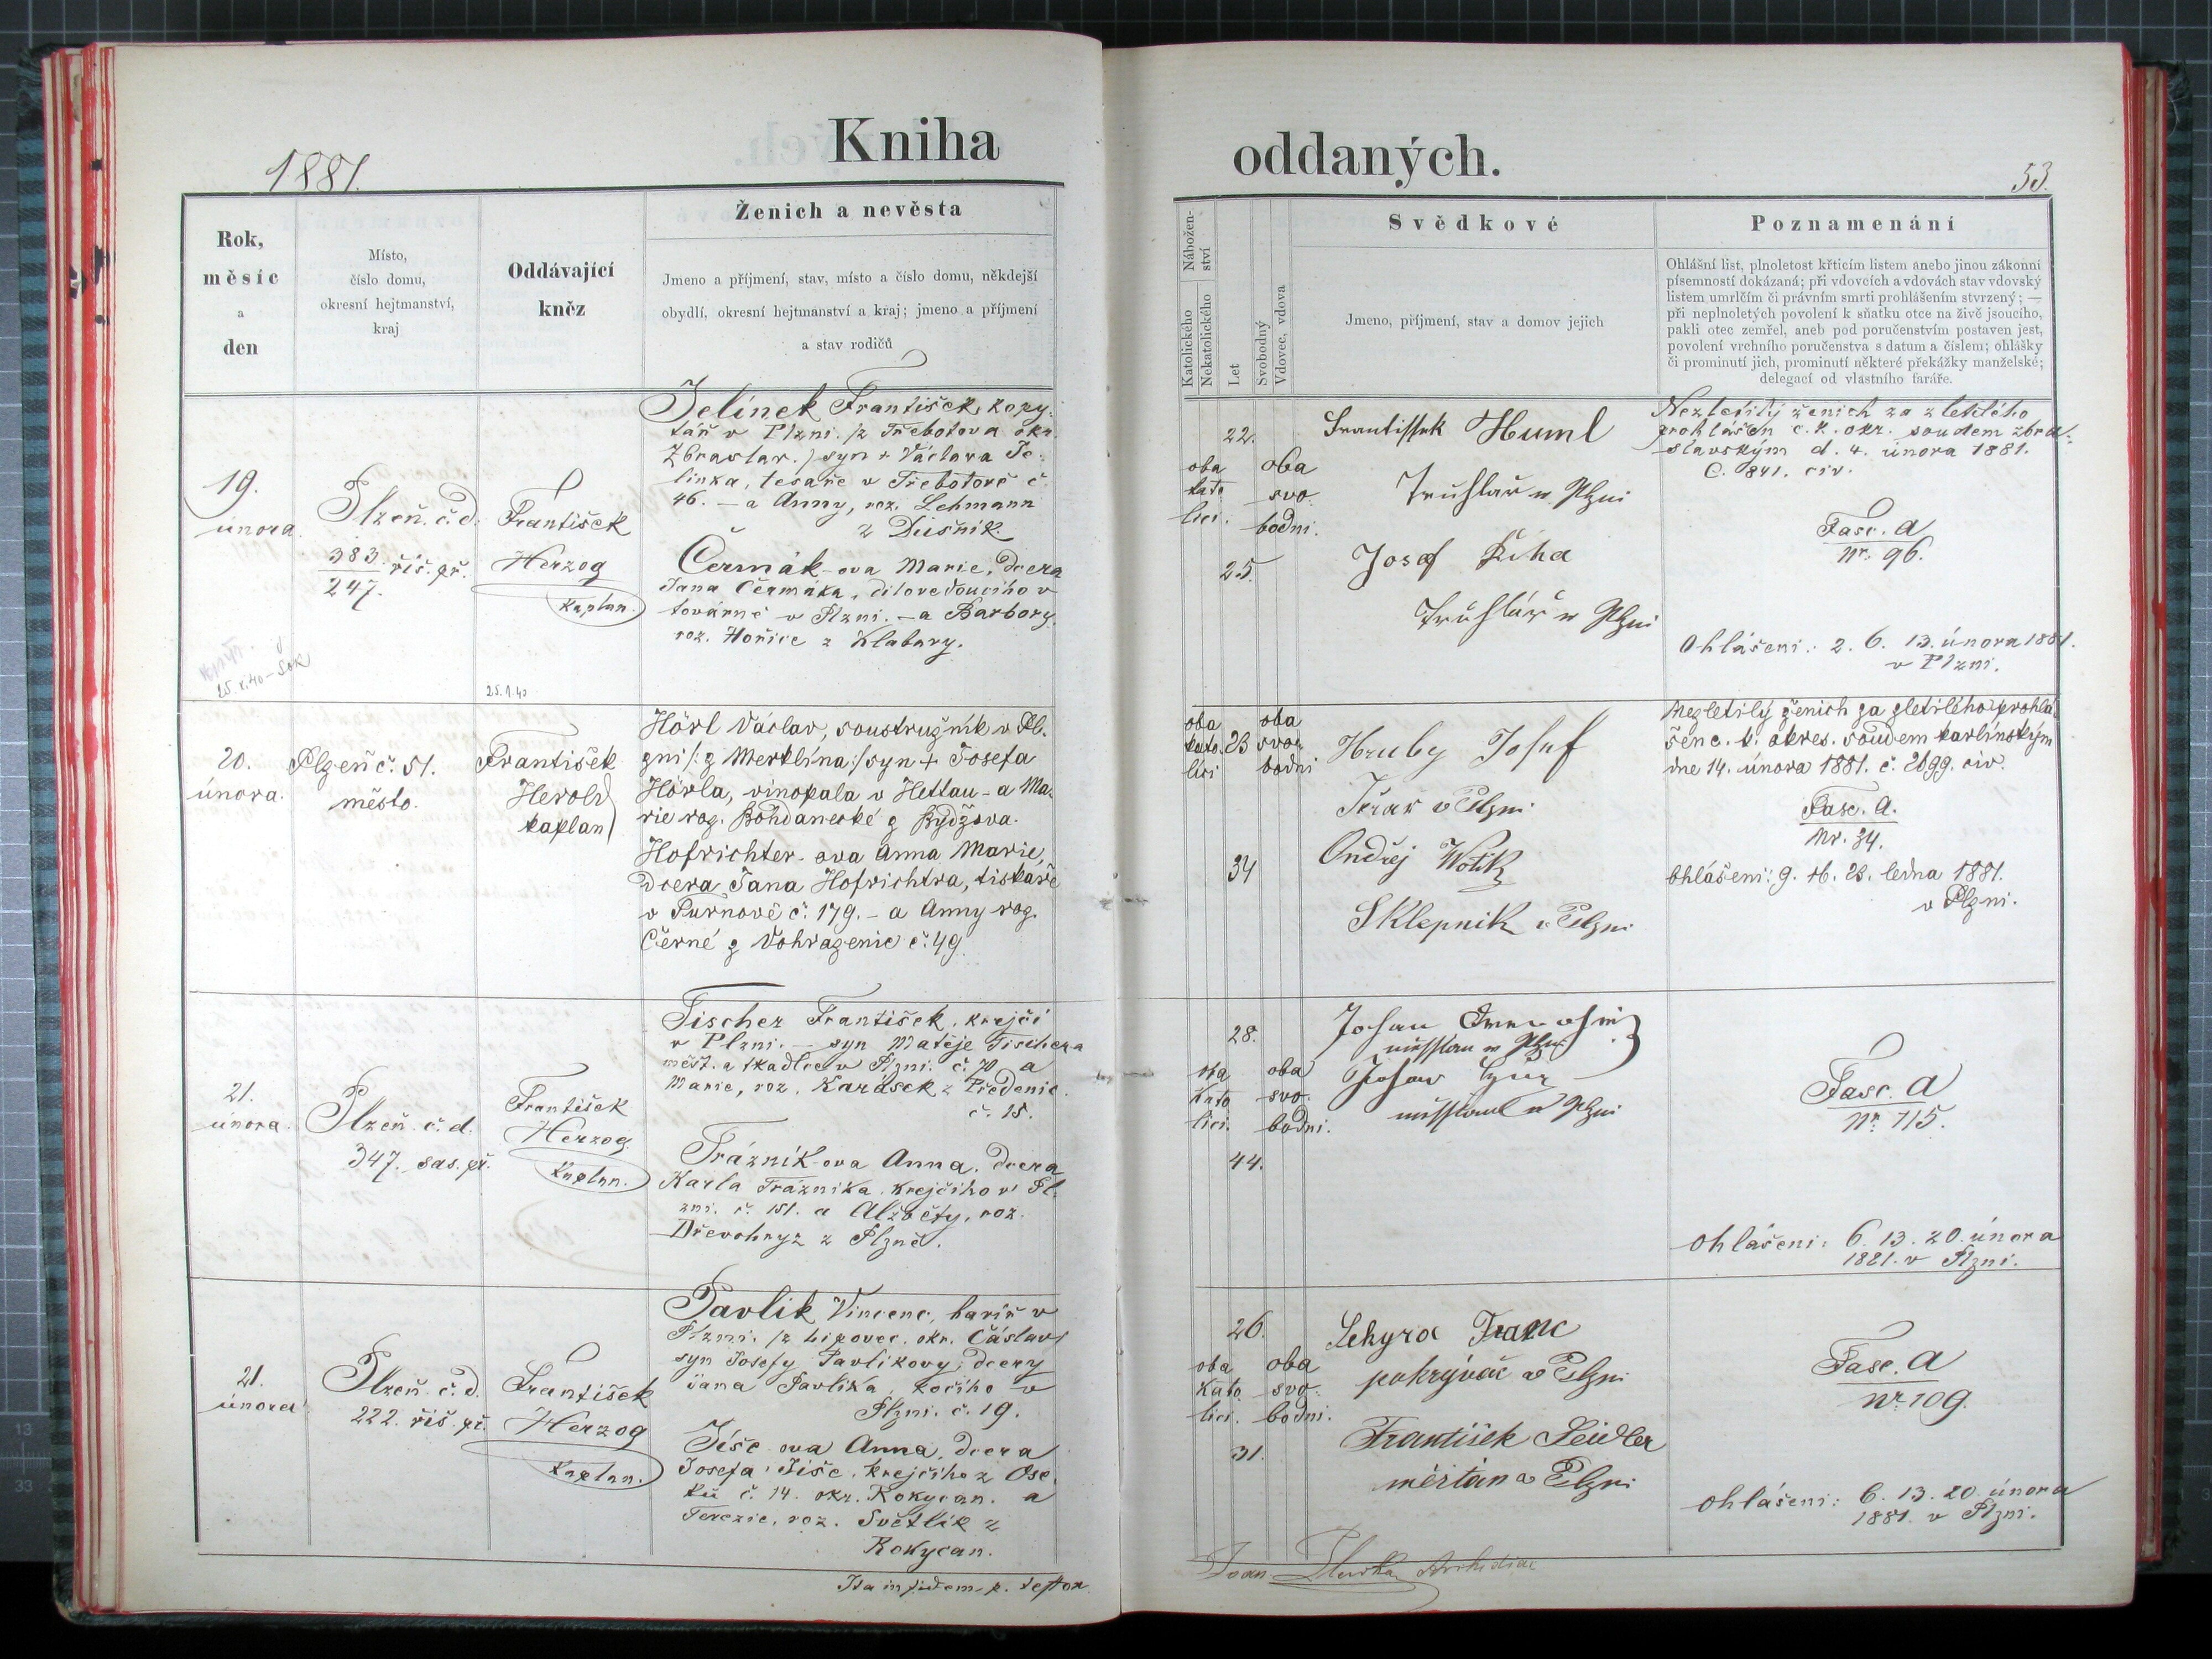 1881.
Kniha
oddaných.
53.
Rok,
měsíc
a
den
Místo,
číslo domu,
okresní hejtmanství,
kraj
Oddávající
kněz
Ženich a nevěsta
Jmeno a příjmení, stav, místo a číslo domu, někdejší
obydlí, okresní hejtmanství a kraj; jmeno a příjmení
a stav rodičů
Nábožen-
ství
Katolického
Nekatolického
Let
Svobodný
Vdovec, vdova
Svědkové
Jmeno, příjmení, stav a domov jejich
Poznamenání
Ohlášní list, plnoletost křticím listem anebo jinou zákonní
písemností dokázaná; při vdovcích a vdovách stav vdovský
listem umrlčím či právním smrti prohlášením stvrzený; —
při neplnoletých povolení k sňatku otce na živě jsoucího,
pakli otec zemřel, aneb pod poručenstvím postaven jest,
povolení vrchního poručenstva s datum a číslem; ohlášky
či prominutí jich, prominutí některé překážky manželské;
delegací od vlastního faráře.
19.
února
Plzeň. č. d.
383. řiš. př.
247.
František
Herzog
Kaplan.
Jelínek František, kopy-
tář v Plzni. /z Třebotova okr.
Zbraslav./ syn + Václava Je-
línka, tesaře v Třebotově č.
46. – a Anny, roz. Lehmann
z Dušník.
Čermák-ova Marie, dcera
Jana Čermáka, dílovedoucího v
továrně v Plzni. – a Barbory,
roz. Hořice z Klabavy.
25.1.40
22.
oba
kato
lici.
oba
svo
bodni.
25.
Frantissek Huml
Truhlař w Plzni
Josef Říha
Truhlář w Plzni
Nezletilý ženich za zletilého
prohlášen c. k. okr. soudem zbra-
slavským d. 4. února 1881.
Č. 841. civ.
Fasc. A
Nr. 96.
Ohlášení: 2. 6. 13. února 1881.
v Plzni.
20.
února.
Plzeň č. 51.
město.
František
Herold
kaplan
Hörl Václav, soustružník v Pl-
zni /: z Merklína:/ syn + Josefa
Hörla, vinopala v Hettau – a Ma-
rie roz. Bohdanecké z Bydžova.
Hofrichter-ova Anna Marie,
dcera Jana Hofrichtra, tiskaře
v Turnově č. 179. – a Anny roz.
Černé z Vohrazenic č. 49
oba
kato.
lici
23
oba
svo-
bodni
34
Hruby Josef
v Plzni
Ondřej Wotik
Sklepnik v Plzni
Nezletilý ženich za zletilého prohlá-
šen c. k. okres. soudem karlínským
dne 14. února 1881. č. 2699. civ.
Fasc. A.
Nr. 34.
Ohlášení: 9. 16. 23. ledna 1881.
v Plzni.
21.
února.
Plzeň. č. d.
347. sas. př.
František
Herzog
Kaplan.
Fischer František, krejčí
v Plzni. – syn Matěje Fischera
měšť. a tkadlce v Plzni. č. 70 a
Marie, roz. Karásek z Předenic.
č. 15.
Trázník-ova Anna, dcera
Karla Trázníka, krejčího v Pl-
zni. č. 151. a Alžběty, roz.
Dřevohryz z Plzně.
28.
oba
Kato
lici.
oba
svo.
bodni.
44.
Johan
w Plzni
w Plzni
Fasc. A
Nr. 115.
Ohlášení: 6. 13. 20. února
1881. v Plzni.
21.
února
Plzeň. č. d.
222. řiš. př.
František
Herzog
Kaplan.
Pavlík Vincenc, havíř v
Plzni. /z Lipovec. okr. Čáslav/
syn Josefy Pavlíkovy, dcery
Jana Pavlíka, kočího v
Plzni. č. 19.
Jíše-ova Anna, dcera
Josefa Jíše, krejčího z Ose-
ku č. 14. okr. Rokycan. a
Terezie, roz. Světlík z
Rokycan.
26.
oba
Kato
lici.
oba
svo.
bodni.
31.
Sekyra Franc
pokrývač v Plzni
František Seidler
měštan v Plzni
Fasc. A
Nr. 109.
Ohlášení: 6. 13. 20. února
1881. v Plzni.
Ita in fidem p.